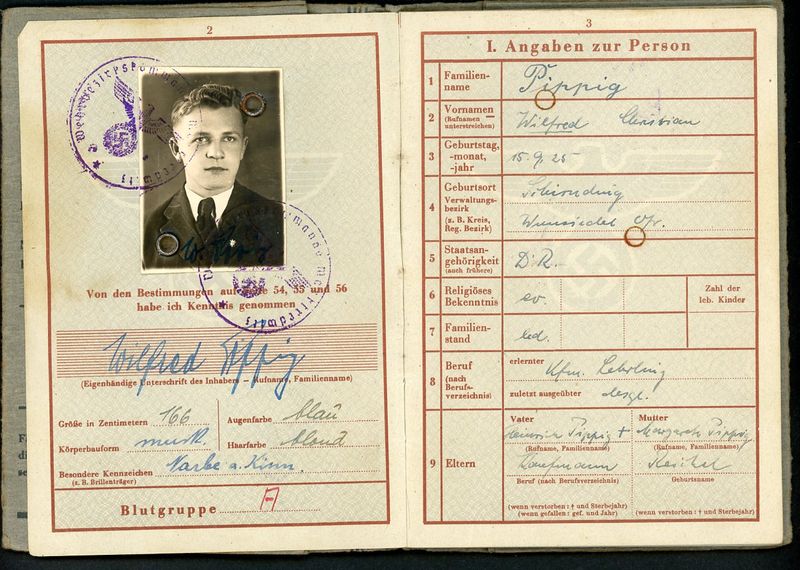 2
Von den Bestimmungen auf Seite 54, 55 und 56
habe ich Kenntnis genommen
Wilfred Pippig
(Eigenhändige Unterschrift des Inhabers — Rufname, Familienname)
Größe in Zentimetern 166
Augenfarbe blau
Körperbauform musk.
Haarfarbe blond
Besondere Kennzeichen Narbe a. Kinn
(z. B. Brillenträger)
Blutgruppe A
3
I. Angaben zur Person
1 Familien-
name
Pippig
2 Vornamen
(Rufnamen
unterstreichen)
Wilfred Christian
3 Geburtstag,
-monat,
-jahr
15.9.25
4 Geburtsort
Verwaltungs-
bezirk
(z. B. Kreis,
Reg. Bezirk)
Schirnding
Wunsiedel Ofr.
5 Staatsan-
gehörigkeit
(auch frühere)
D.R.
6 Religiöses
Bekenntnis
ev.
Zahl der
leb. Kinder
7 Familien-
stand
led.
8 Beruf
(nach
Berufs-
verzeichnis)
erlernter
Kfm. Lehrling
zuletzt ausgeübter
desgl.
9 Eltern
Vater
Heinrich Pippig +
(Rufname, Familienname)
Kaufmann
Beruf (nach Berufsverzeichnis)
(wenn verstorben: † und Sterbejahr)
(wenn gefallen: gef. und Jahr)
Mutter
Margarete Pippig
(Rufname, Familienname)
Geburtsname
(wenn verstorben: † und Sterbejahr)